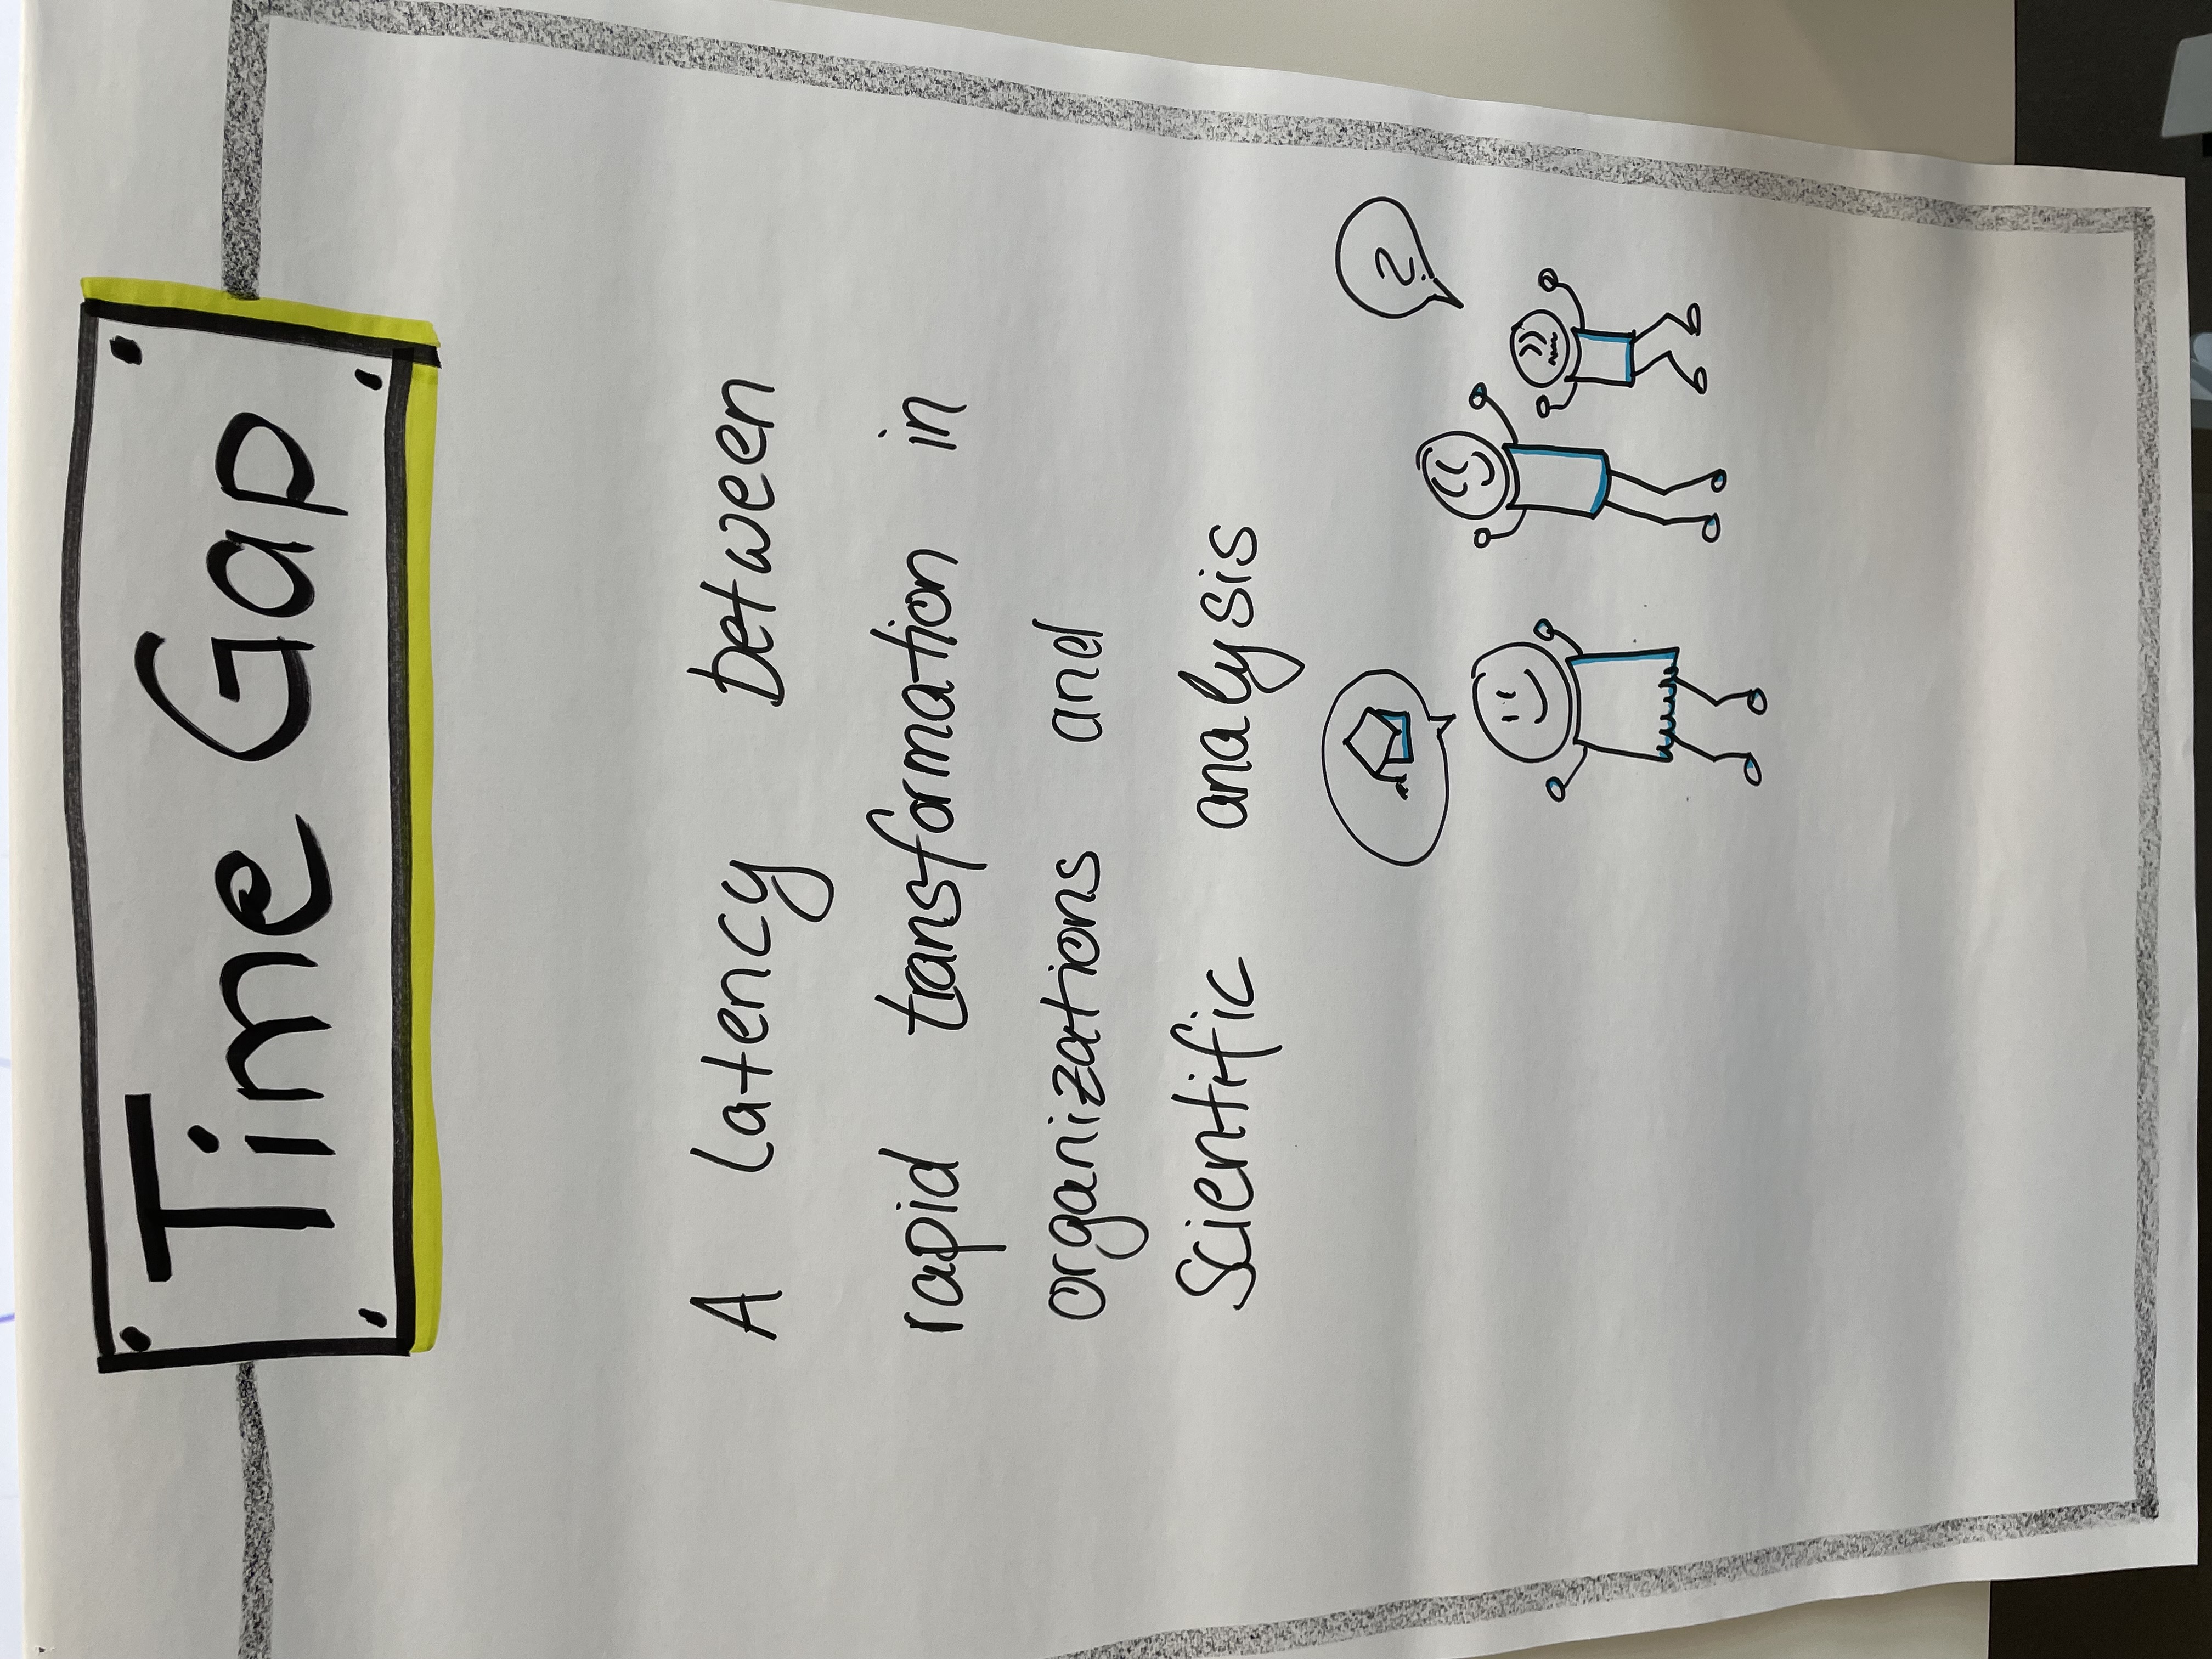 Time Gap
A latency between
rapid transformation in
organizations and
Scientific analysis
?